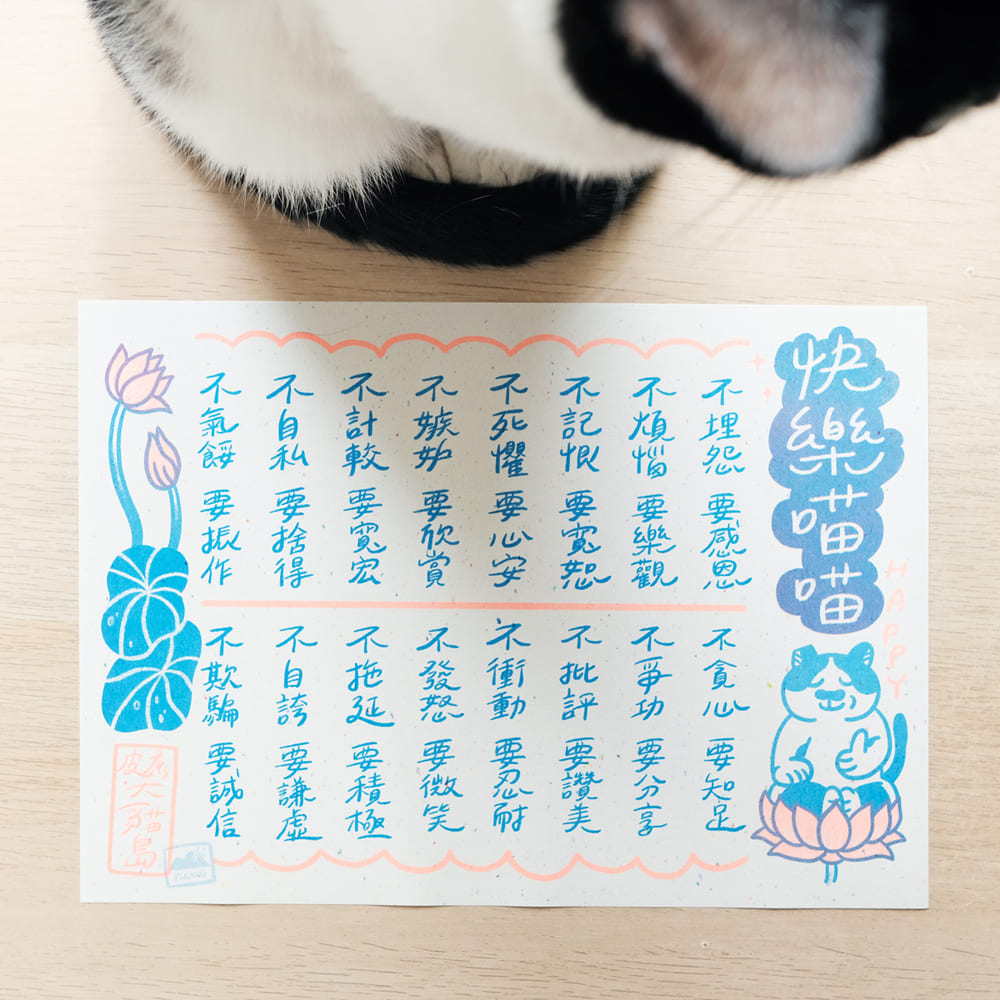 快樂喵喵
HAPPY
不埋怨 要感恩
不煩惱 要樂觀
不記恨 要寬恕
不死懼 要心安
不嫉妒 要欣賞
不計較 要寬宏
不自私 要捨得
不氣餒 要振作
不貪心 要知足
不爭功 要分享
不批評 要讚美
不衝動 要忍耐
不發怒 要微笑
不拖延 要積極
不自誇 要謙虛
不欺騙 要誠信